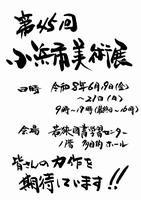 第45回
小浜市美術展
日時 令和8年6月19日(金)
～21日(日)
9時～17時(最終日～16時)
会場 若狭図書学習センター
1階 多目的ホール
皆さんの力作を
期待しています!!